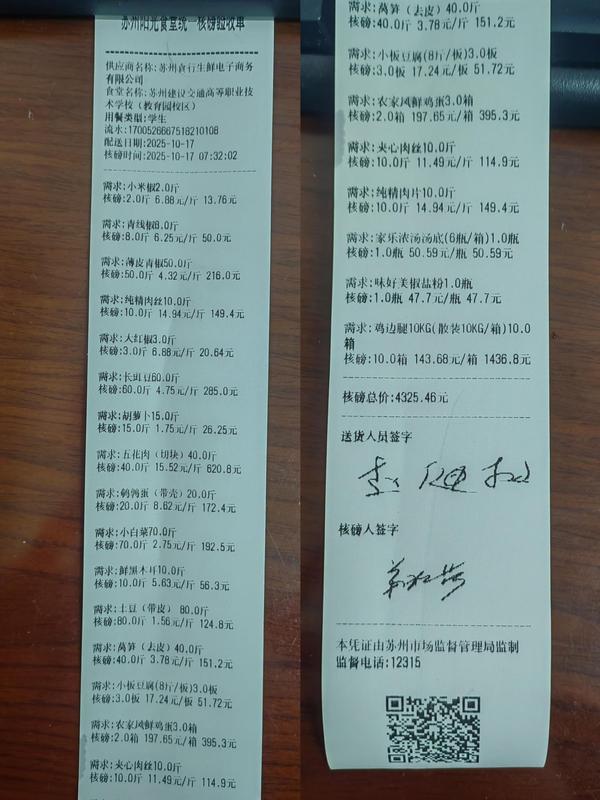 苏州阳光食堂统一核磅验收单
供应商名称:苏州食行生鲜电子商务
有限公司
食堂名称:苏州建设交通高等职业技
术学校（教育园校区）
用餐类型:学生
流水:1700526667518210108
配送日期:2025-10-17
核磅时间:2025-10-17 07:32:02
需求:小米椒2.0斤
核磅:2.0斤 6.88元/斤 13.76元
需求:青线椒8.0斤
核磅:8.0斤 6.25元/斤 50.0元
需求:薄皮青椒50.0斤
核磅:50.0斤 4.32元/斤 216.0元
需求:纯精肉丝10.0斤
核磅:10.0斤 14.94元/斤 149.4元
需求:大红椒3.0斤
核磅:3.0斤 6.88元/斤 20.64元
需求:长豇豆60.0斤
核磅:60.0斤 4.75元/斤 285.0元
需求:胡萝卜15.0斤
核磅:15.0斤 1.75元/斤 26.25元
需求:五花肉（切块）40.0斤
核磅:40.0斤 15.52元/斤 620.8元
需求:鹌鹑蛋（带壳）20.0斤
核磅:20.0斤 8.62元/斤 172.4元
需求:小白菜70.0斤
核磅:70.0斤 2.75元/斤 192.5元
需求:鲜黑木耳10.0斤
核磅:10.0斤 5.63元/斤 56.3元
需求:土豆（带皮） 80.0斤
核磅:80.0斤 1.56元/斤 124.8元
需求:莴笋（去皮）40.0斤
核磅:40.0斤 3.78元/斤 151.2元
需求:小板豆腐(8斤/板)3.0板
核磅:3.0板 17.24元/板 51.72元
需求:农家风鲜鸡蛋3.0箱
核磅:2.0箱 197.65元/箱 395.3元
需求:夹心肉丝10.0斤
核磅:10.0斤 11.49元/斤 114.9元
需求:莴笋（去皮）40.0斤
核磅:40.0斤 3.78元/斤 151.2元
需求:小板豆腐(8斤/板)3.0板
核磅:3.0板 17.24元/板 51.72元
需求:农家风鲜鸡蛋3.0箱
核磅:2.0箱 197.65元/箱 395.3元
需求:夹心肉丝10.0斤
核磅:10.0斤 11.49元/斤 114.9元
需求:纯精肉片10.0斤
核磅:10.0斤 14.94元/斤 149.4元
需求:家乐浓汤汤底(6瓶/箱)1.0瓶
核磅:1.0瓶 50.59元/瓶 50.59元
需求:味好美椒盐粉1.0瓶
核磅:1.0瓶 47.7元/瓶 47.7元
需求:鸡边腿10KG(散装10KG/箱)10.0
箱
核磅:10.0箱 143.68元/箱 1436.8元
核磅总价:4325.46元
送货人员签字
核磅人签字
本凭证由苏州市场监督管理局监制
监督电话:12315